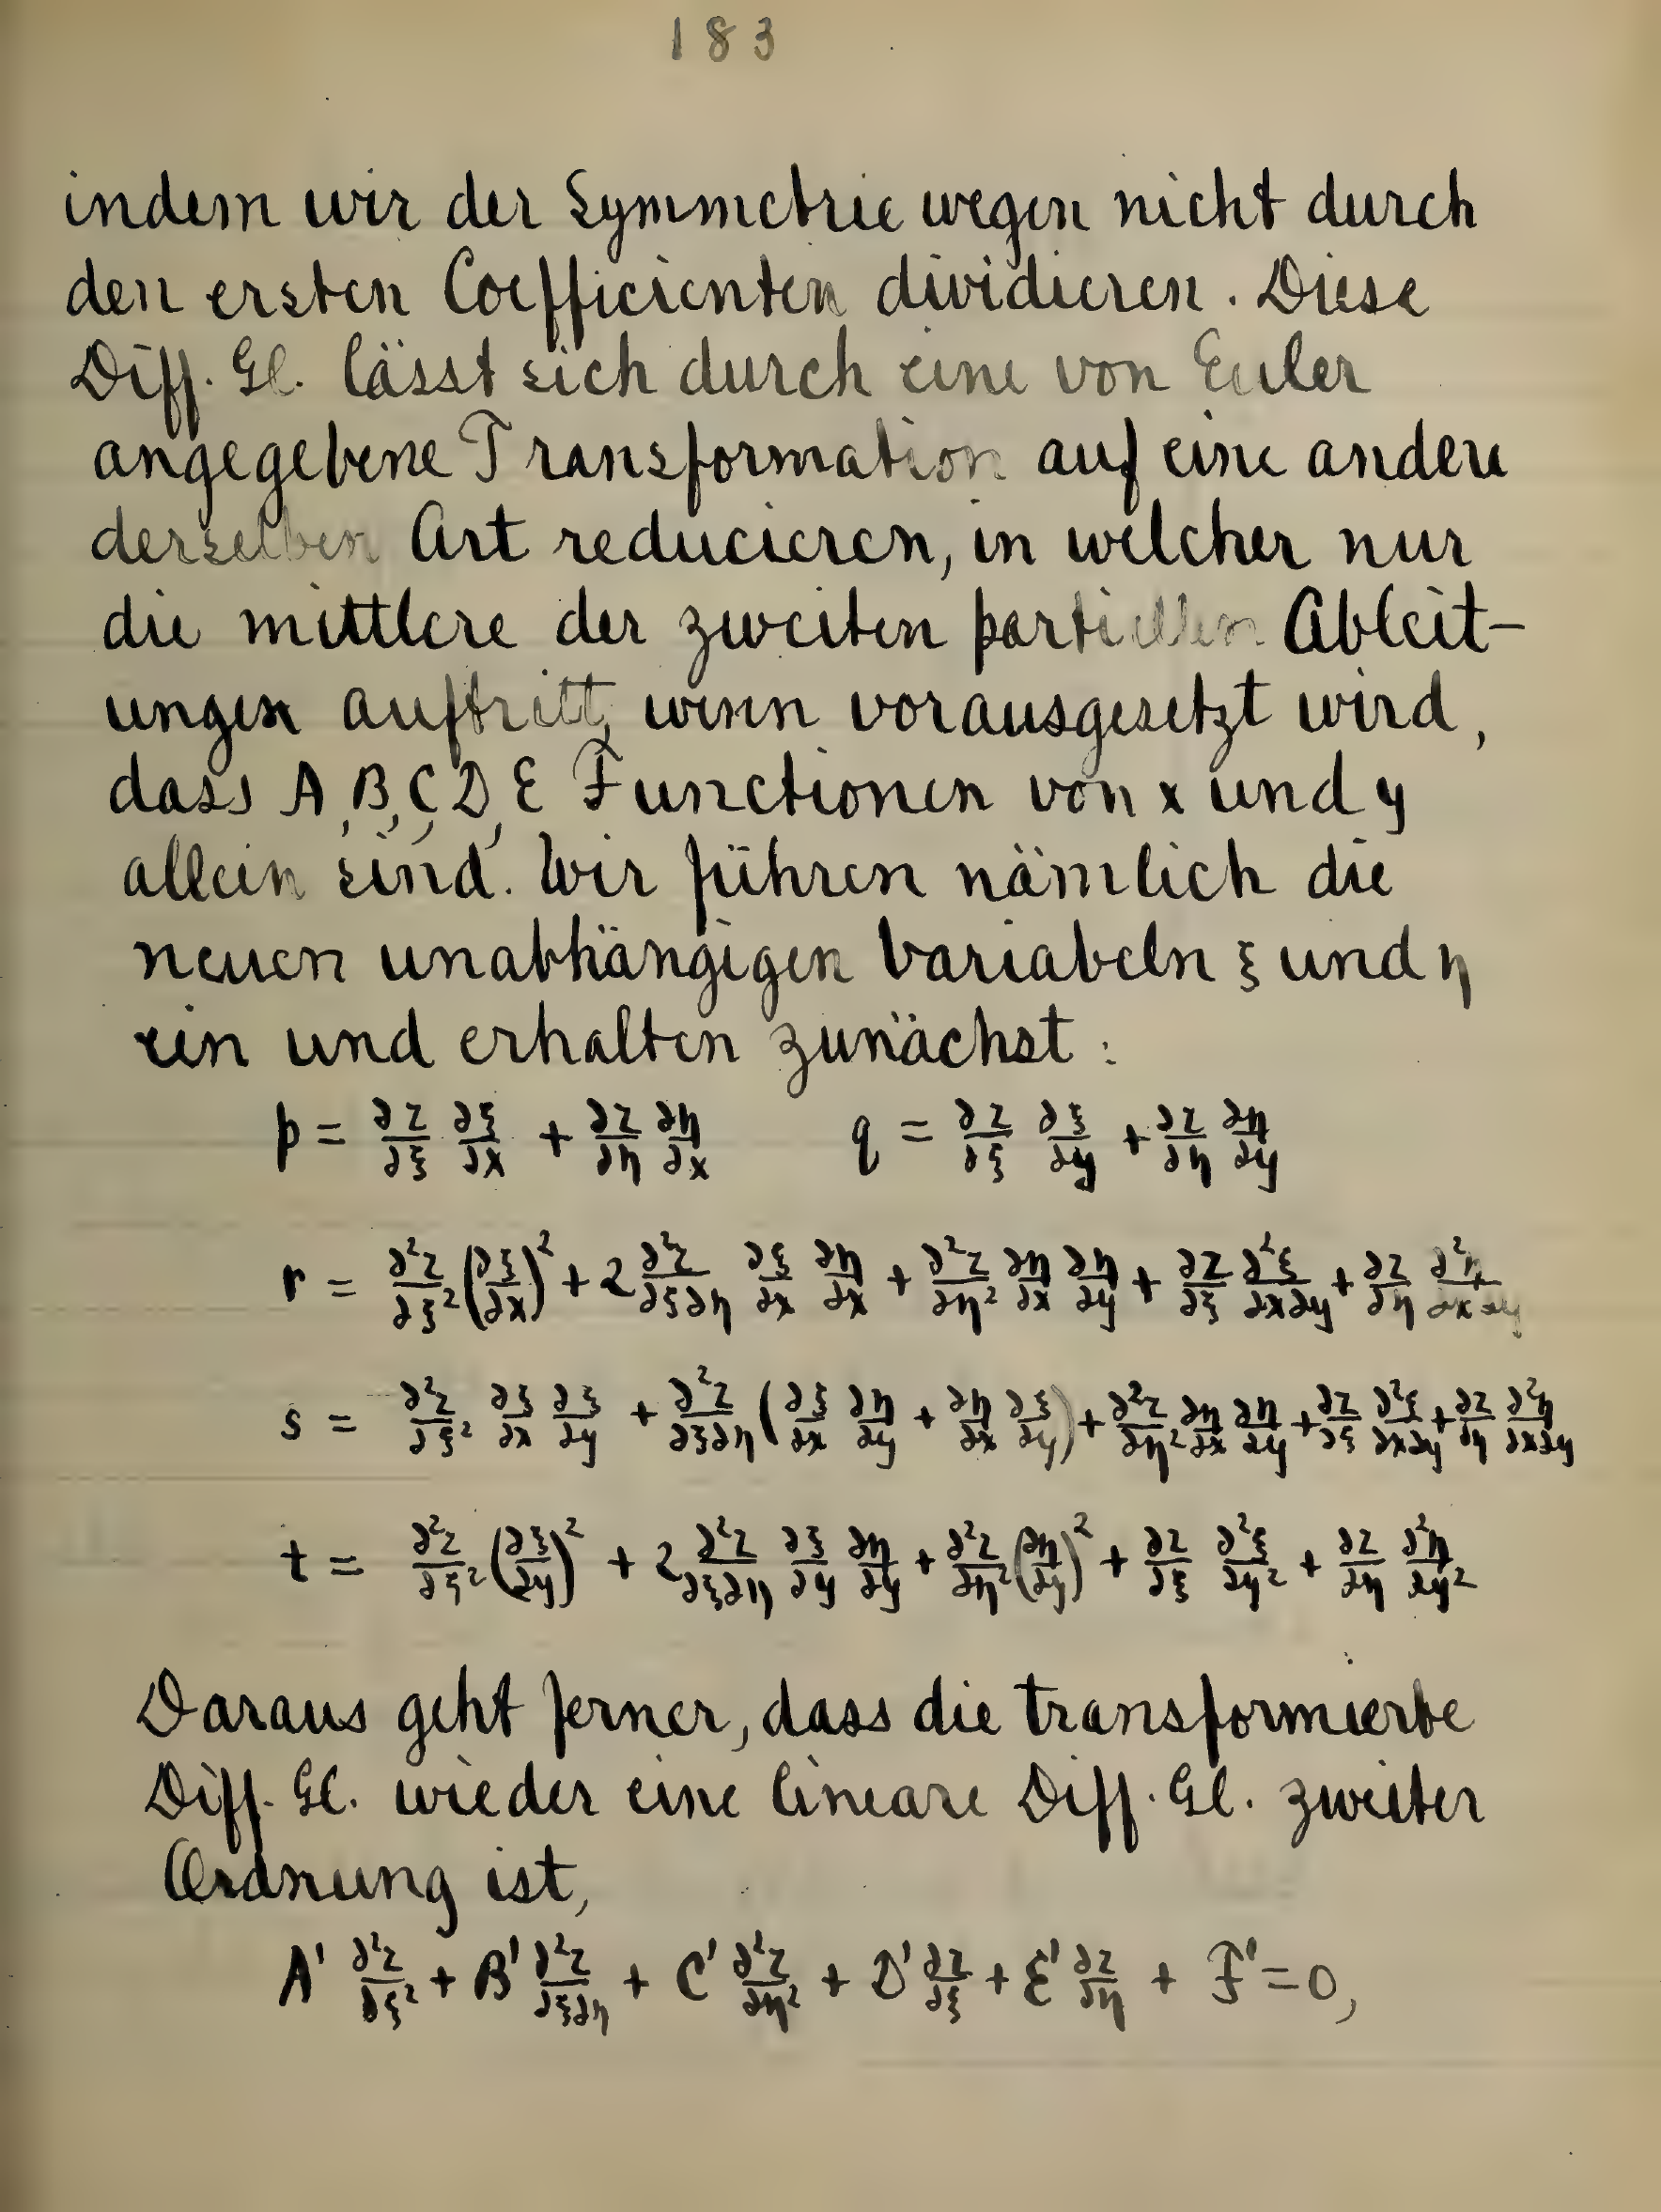 183
indem wir der Symmetrie wegen nicht durch
den ersten Coefficienten dividieren. Diese
Diff. Gl. lässt sich durch eine von Euler
angegebene Transformation auf eine andere
derselben Art reducieren, in welcher nur
die mittlere der zweiten partiellen Ableit-
ungen auftritt, wenn vorausgesetzt wird,
dass A, B, C, D, E Functionen von x und y
allein sind. Wir führen nämlich die
neuen unabhängigen Variabeln ξ und η
ein und erhalten zunächst:
p = ∂z/∂ξ ∂ξ/∂x + ∂z/∂η ∂η/∂x q = ∂z/∂ξ ∂ξ/∂y + ∂z/∂η ∂η/∂y
r = ∂²z/∂ξ² (∂ξ/∂x)² + 2 ∂²z/∂ξ∂η ∂ξ/∂x ∂η/∂x + ∂²z/∂η² ∂η/∂x ∂η/∂y + ∂z/∂ξ ∂²ξ/∂x∂y + ∂z/∂η ∂²η/∂x∂y
s = ∂²z/∂ξ² ∂ξ/∂x ∂ξ/∂y + ∂²z/∂ξ∂η (∂ξ/∂x ∂η/∂y + ∂η/∂x ∂ξ/∂y) + ∂²z/∂η² ∂η/∂x ∂η/∂y + ∂z/∂ξ ∂²ξ/∂x∂y + ∂z/∂η ∂²η/∂x∂y
t = ∂²z/∂ξ² (∂ξ/∂y)² + 2 ∂²z/∂ξ∂η ∂ξ/∂y ∂η/∂y + ∂²z/∂η² (∂η/∂y)² + ∂z/∂ξ ∂²ξ/∂y² + ∂z/∂η ∂²η/∂y²
Daraus geht ferner, dass die transformierte
Diff. Gl. wieder eine lineare Diff. Gl. zweiter
Ordnung ist,
A' ∂²z/∂ξ² + B' ∂²z/∂ξ∂η + C' ∂²z/∂η² + D' ∂z/∂ξ + E' ∂z/∂η + F' = 0,